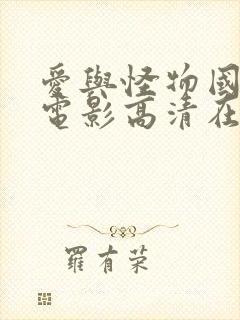 愛與怪物國
電影高清在
羅有荣